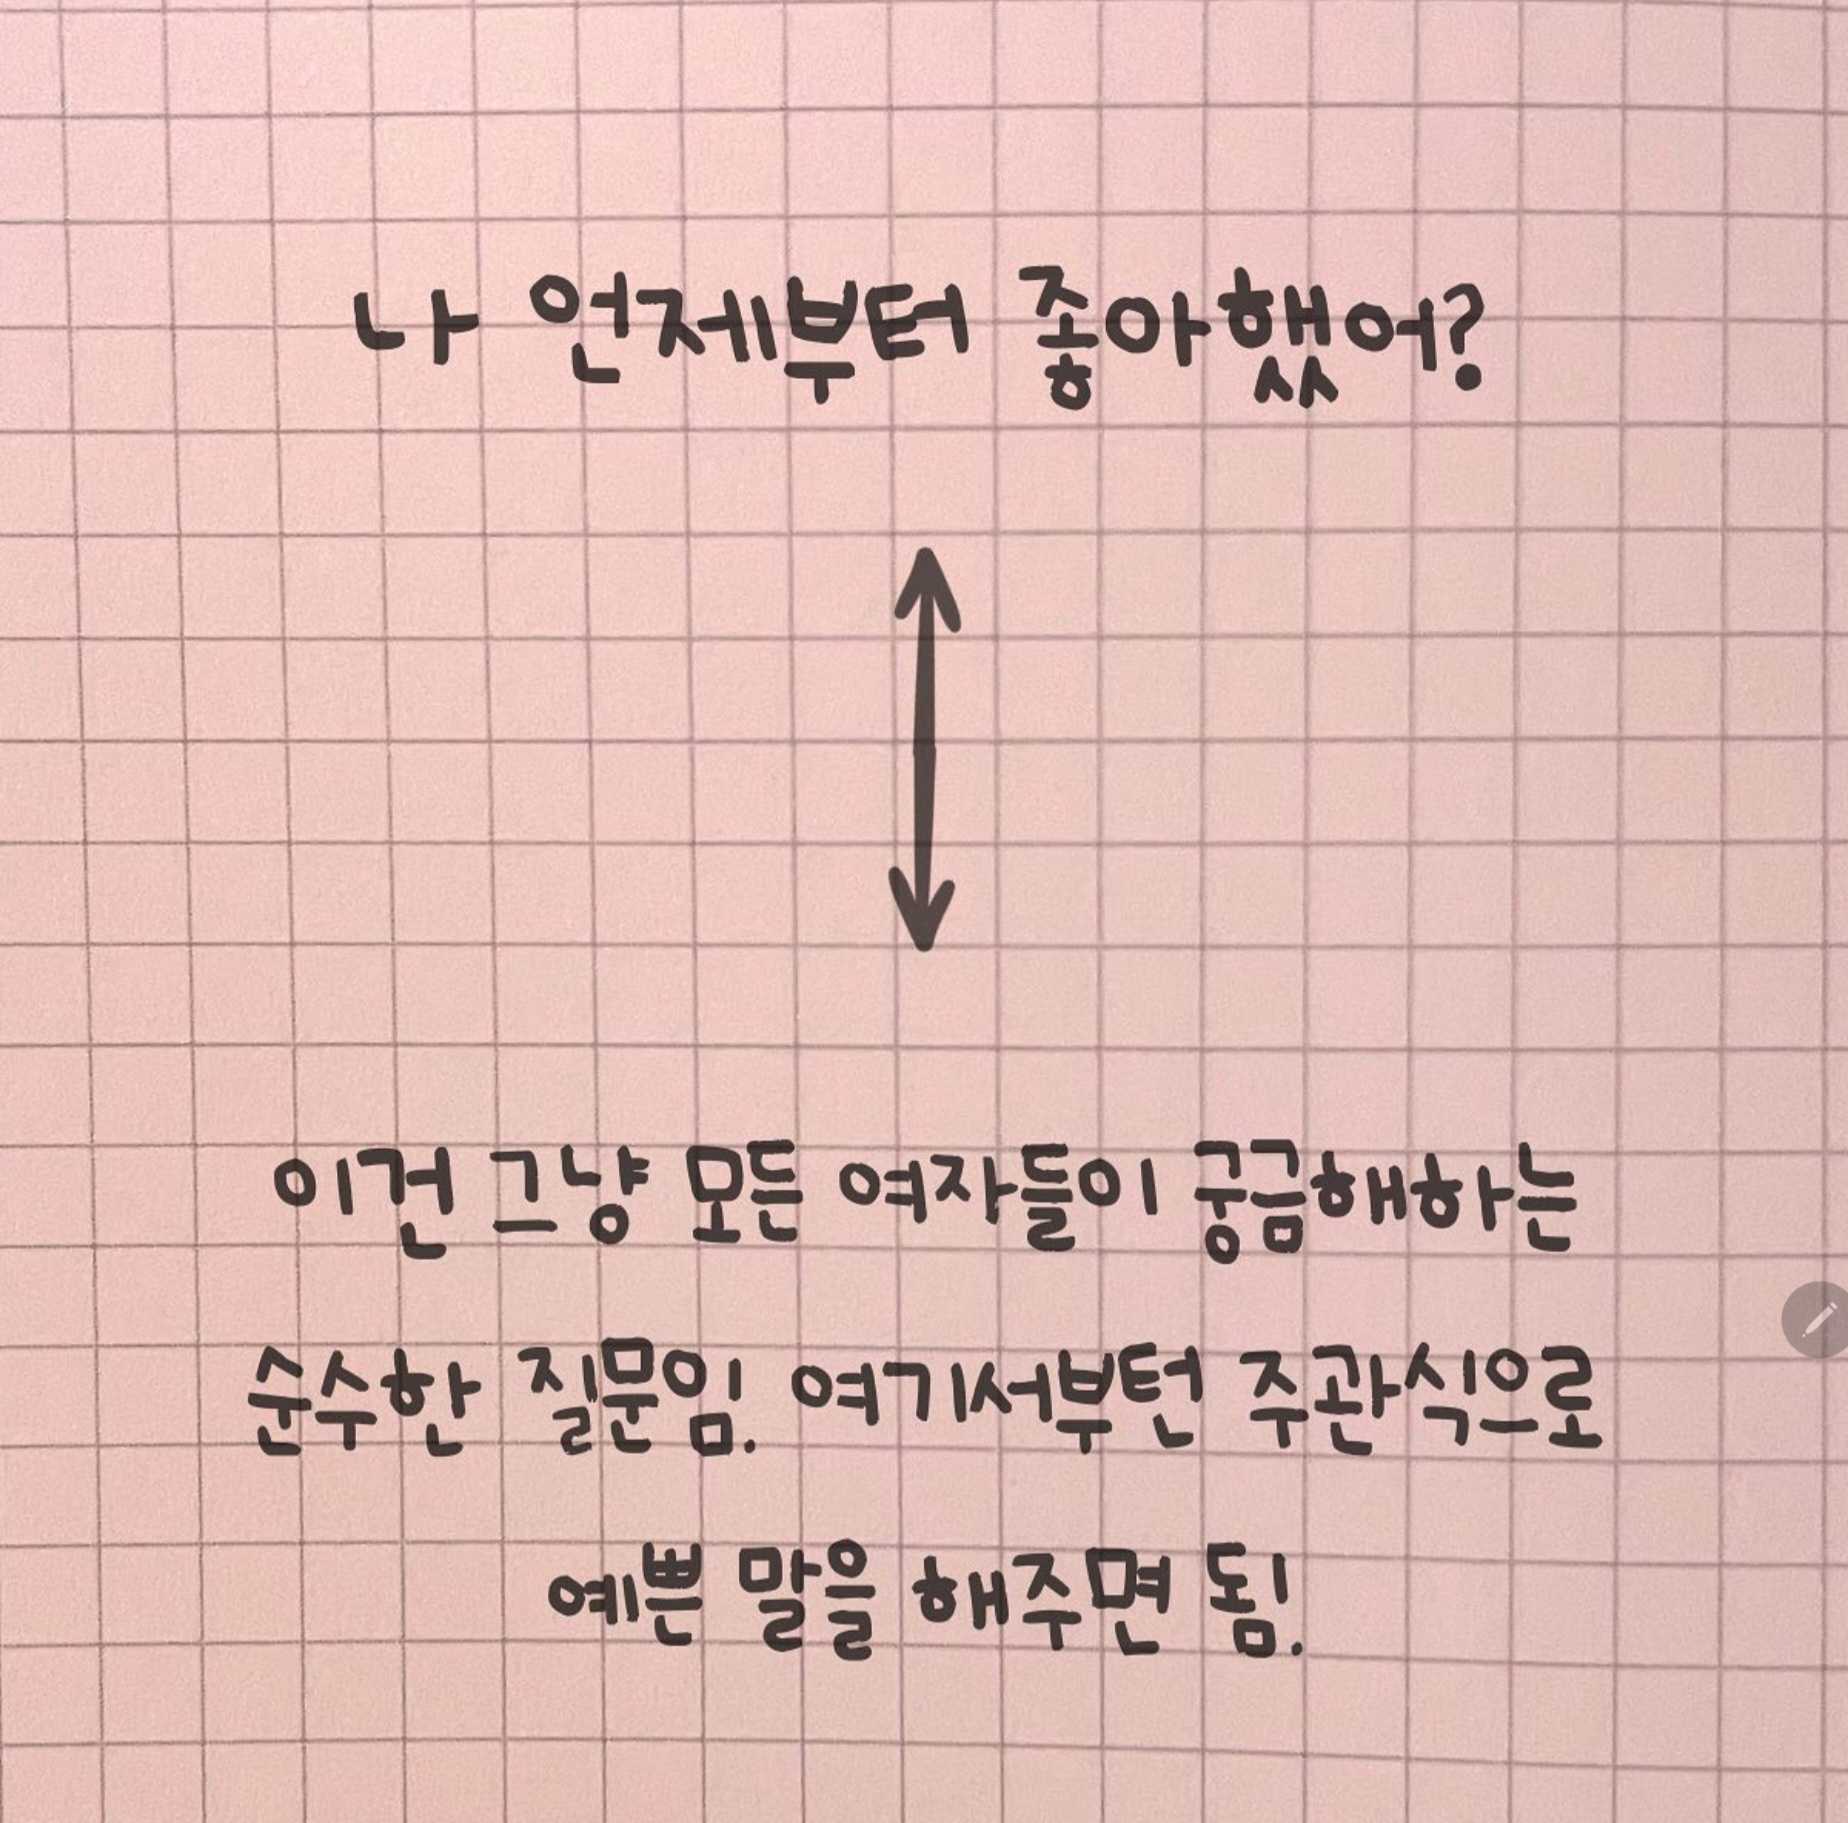 나 언제부터 좋아했어?
이건 그냥 모든 여자들이 궁금해하는
순수한 질문임. 여기서부턴 주관식으로
예쁜 말을 해주면 됨.